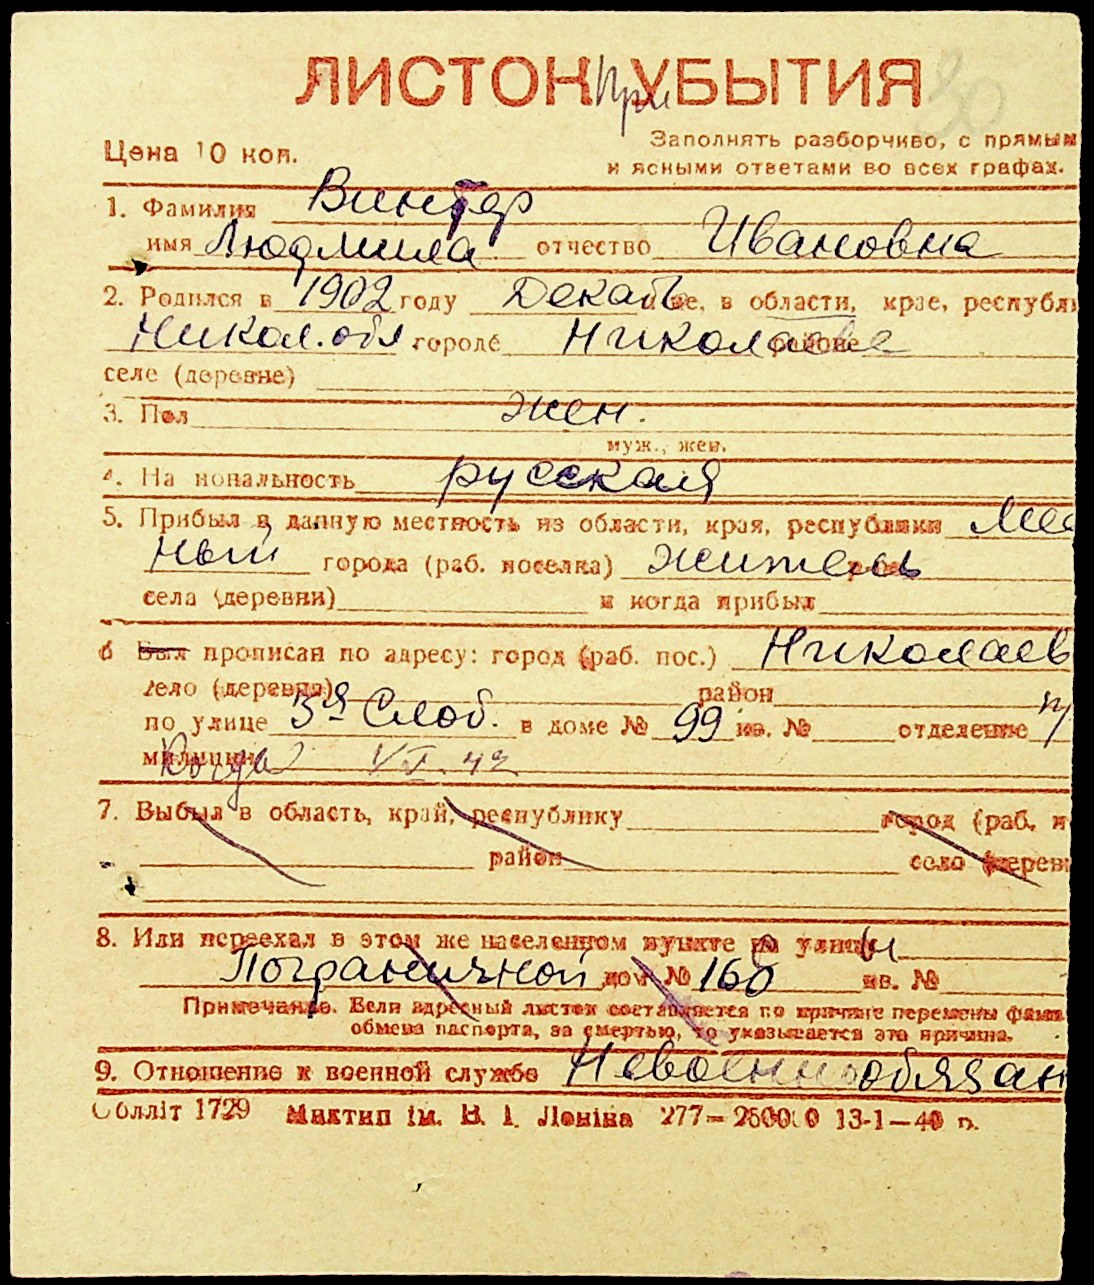 ЛИСТОК При УБЫТИЯ 20
Цена 10 коп.
Заполнять разборчиво, с прямым
и ясными ответами во всех графах.
1. Фамилия Винтер
имя Людмила отчество Ивановна
2. Родился в 1902 году Декаб м-це, в области, крае, республ
Никол. обл. городе Николаеве районе
селе (деревне)
3. Пол жен.
муж., жен.
4. На иональность русская
5. Прибыл в данную местность из области, края, республики Мес
ный города (раб. поселка) житель р-на
села (деревни) и когда прибыл
6 Был прописан по адресу: город (раб. пос.) Николаев
село (деревня) район
по улице 3я Слоб. в доме № 99 кв. № отделение
милиции Когда 2 VI. 42
7. Выбыл в область, край, республику город (раб. п
район село (дерев
8. Или переехал в этом же населенном пункте на улицы
Пограничной дом № 160 кв. №
Примечание. Если адресный листок составляется по причине перемены фами
обмена паспорта, за смертью, то указывается эта причина.
9. Отношение к военной службе Невоеннообязан
Облліт 1729 Миктип ім. В. І. Леніна 277—250000 13-1—40 р.